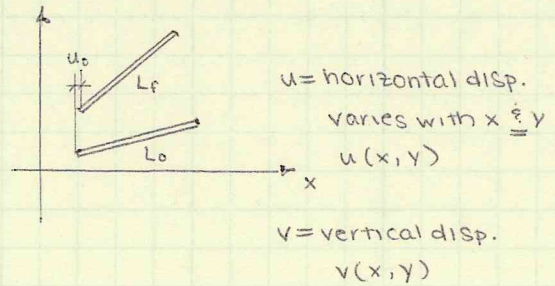 u₀
Lf
L₀
x
u = horizontal disp.
varies with x & y
u(x,y)
v = vertical disp.
v(x,y)